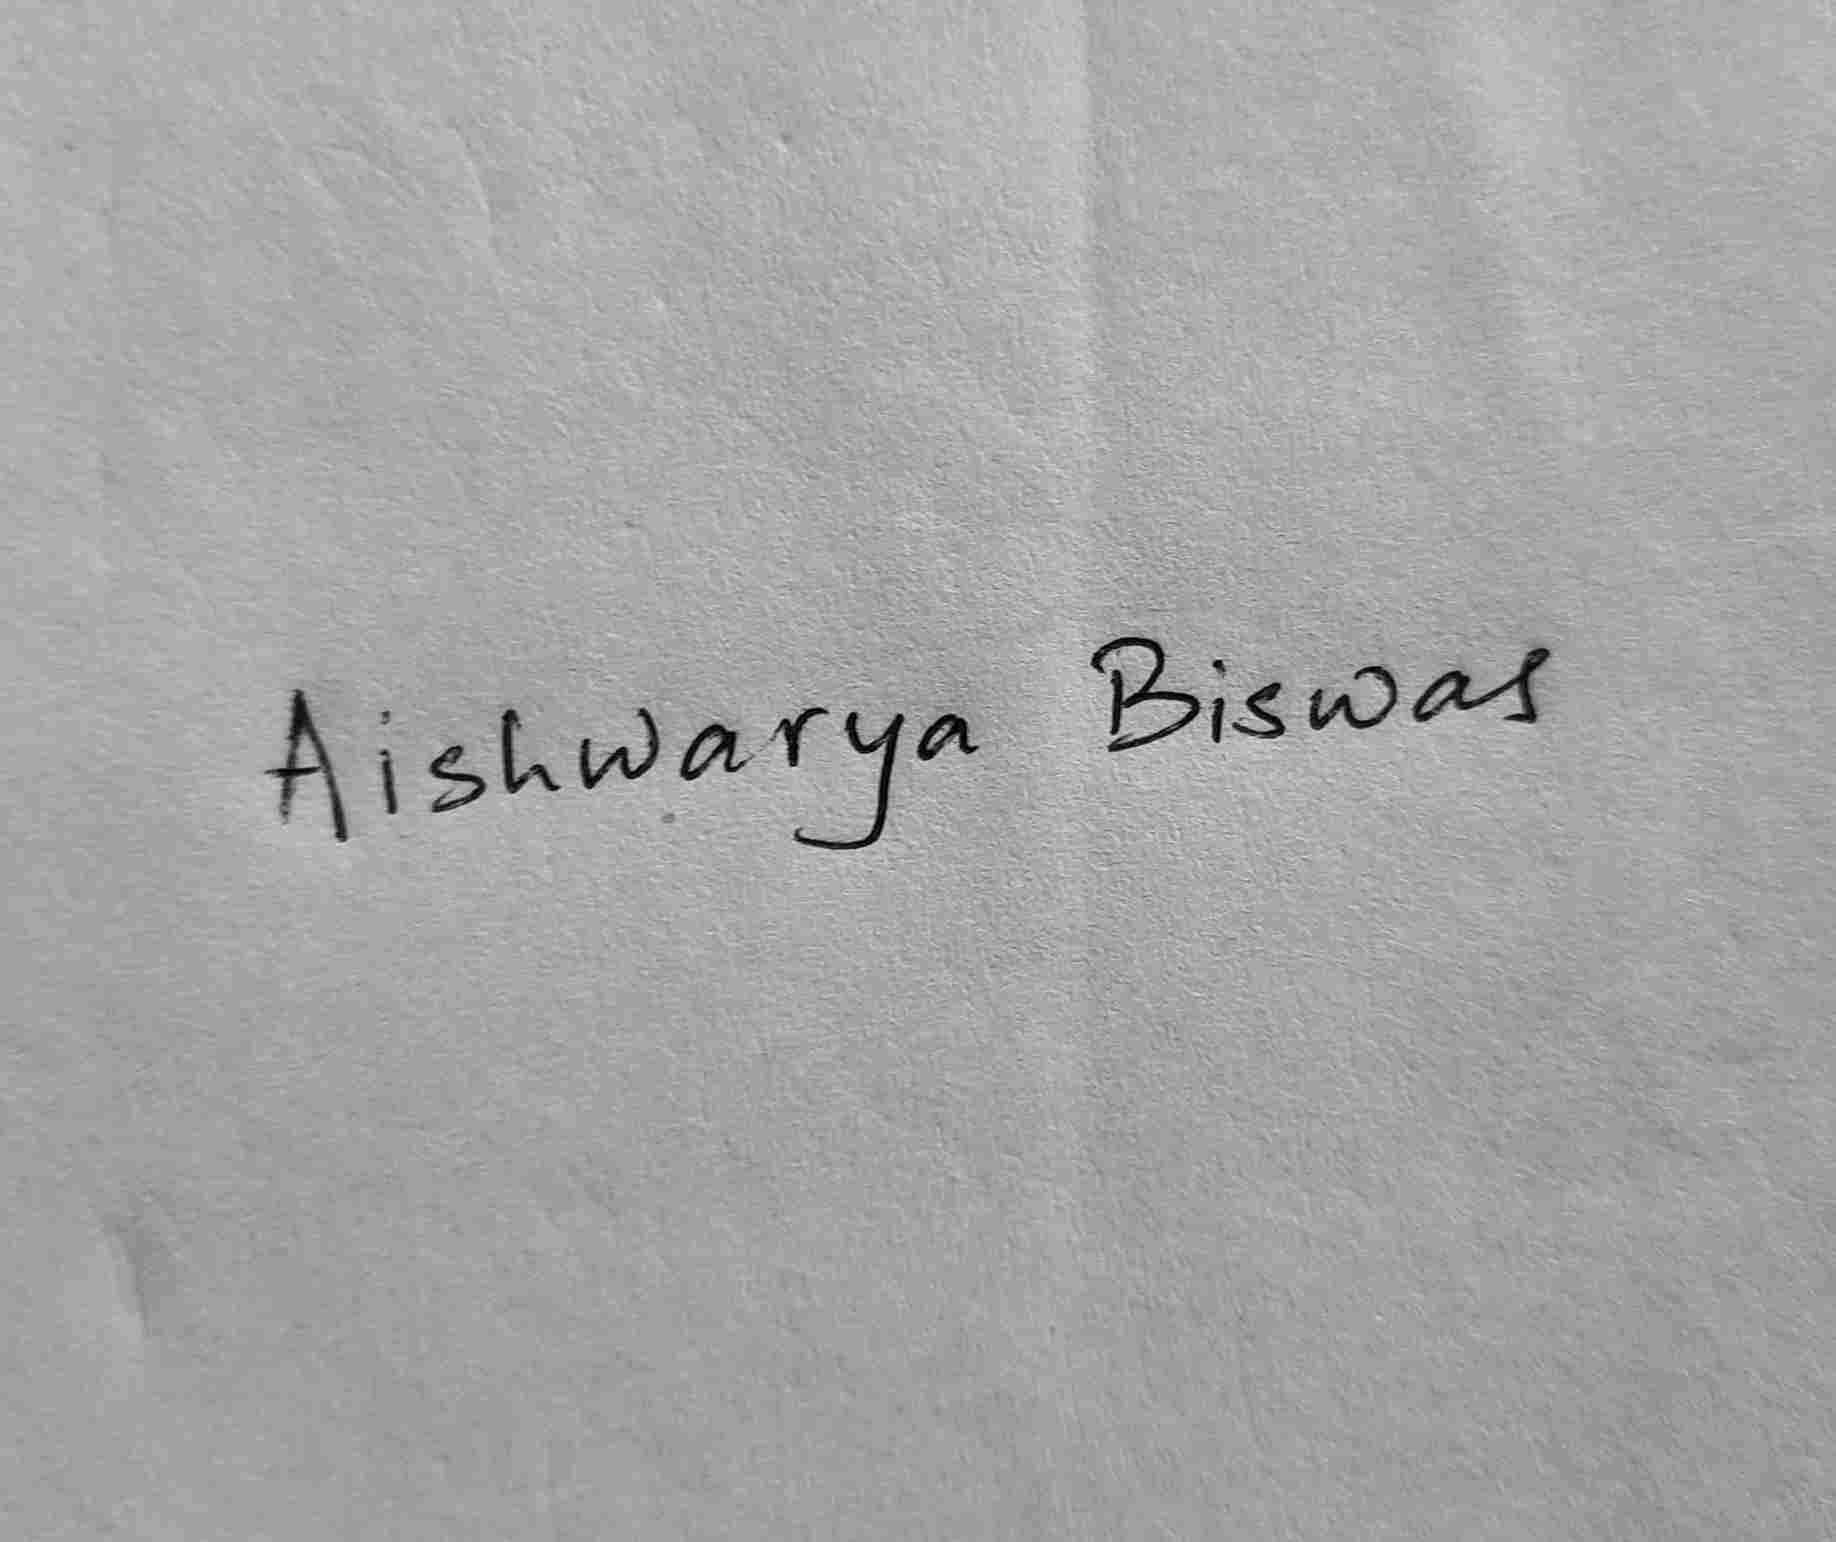 Aishwarya Biswas